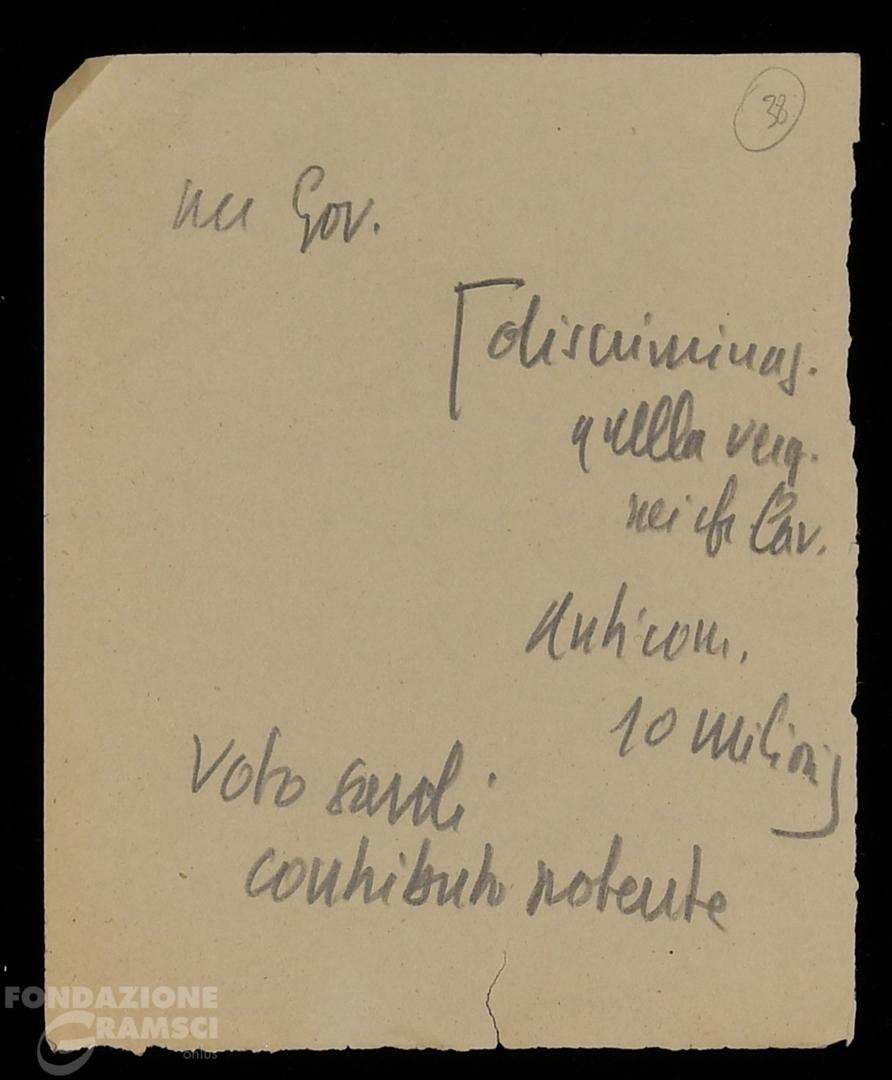 38
un Gov.
[discriminaz.
quella verg.
nei cfr Lav.
Anticom.
10 milioni]
Voto sardi
contributo potente
FONDAZIONE
GRAMSCI
onlus